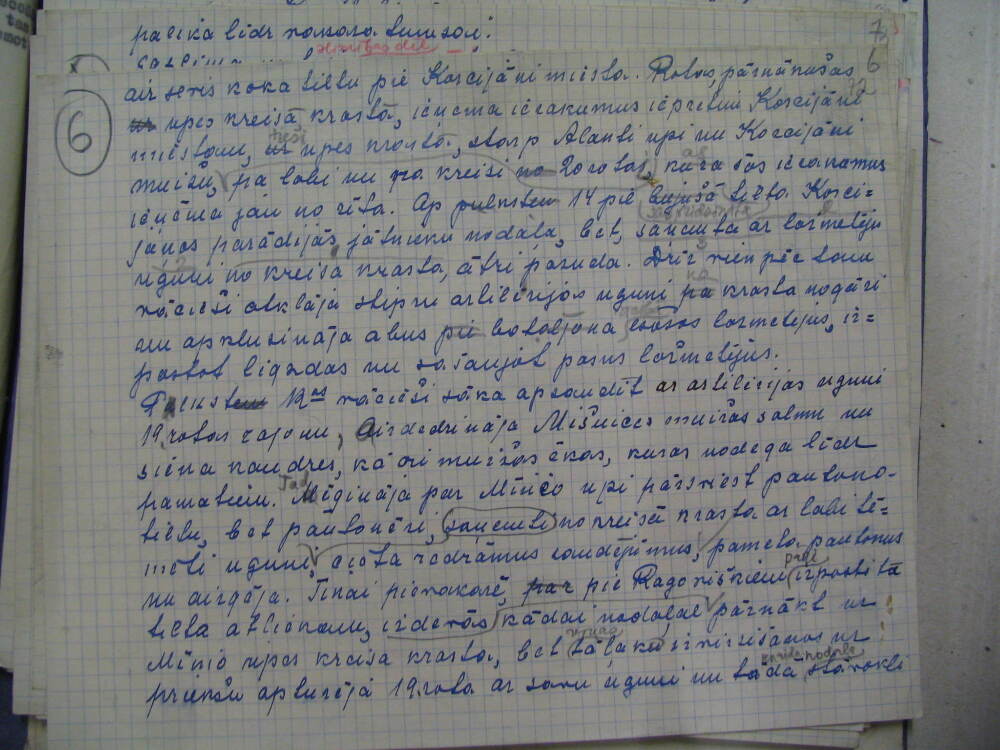 palika līdz vakara tumsai.
7
6
aiz sevis koka tiltu pie Korcijāni miesta. Rotas, pārnākušas
6
upes kreisā krastā, ieņēma ierakumus iepretim Korcijāni
miestam, upes krasta, starp Alanti upi un Korcijāni
muižu, pa labi un pa kreisi no 20 rotas, kura šos ierakumus
ieņēma jau no rīta. Ap pulksten 14 pie bijušā tilta Korci=
jānos parādījās jātnieku nodaļa, bet, saņemta ar ložmetēju
uguni no kreisa krasta, ātri pazuda. Drīz vien pēc tam
vācieši atklāja stipru artilērijas uguni pa krasta nogāzi
un apklusināja abus pie bataljona esošos ložmetējus, iz=
postot ligzdas un sašaujot pašus ložmetējus.
Pulksten 19os vācieši sāka apšaudīt ar artilērijas uguni
19 rotas rajonu, aizdedzināja Mišnices muižas salmu un
siena kaudzes, kā arī muižas ēkas, kuras nodega līdz
pamatiem. Tad Mēģināja par Minčo upi pārsviest pantono-
tiltu, bet pantonēri, saņemti no kreisā krasta ar labi tē=
mēti uguni, cieta zināmus zaudējumus, pameta pantonus
un aizgāja. Tikai pievakarē, pie Ragoviškiem izpostīta
tilta atliekām, izdevās kādai nodaļai pārnākt uz
Minio upes kreisa krasta, bet tālāku izvirzīšanos uz
priekšu apturēja 19 rota ar savu uguni un tādā stāvoklī